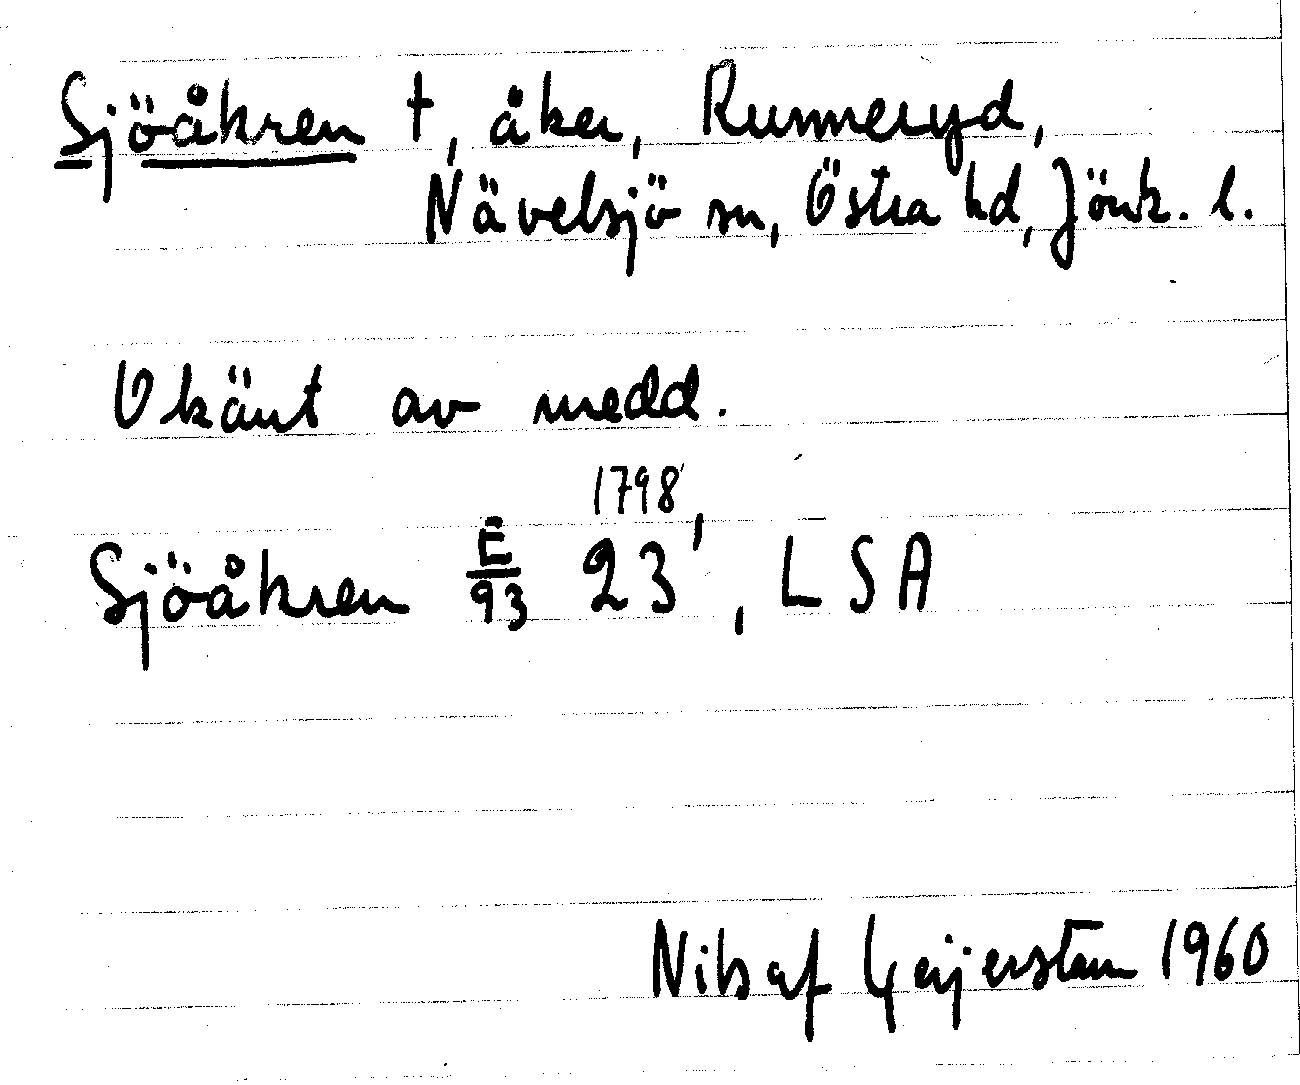 Sjöåkren †, åker, Runneryd,
Nävelsjö sn, Östra hd, Jönk. l.
Okänt av medd.
1798,
Sjöåkren E/93 23, LSA
Nils af Geijerstam 1960